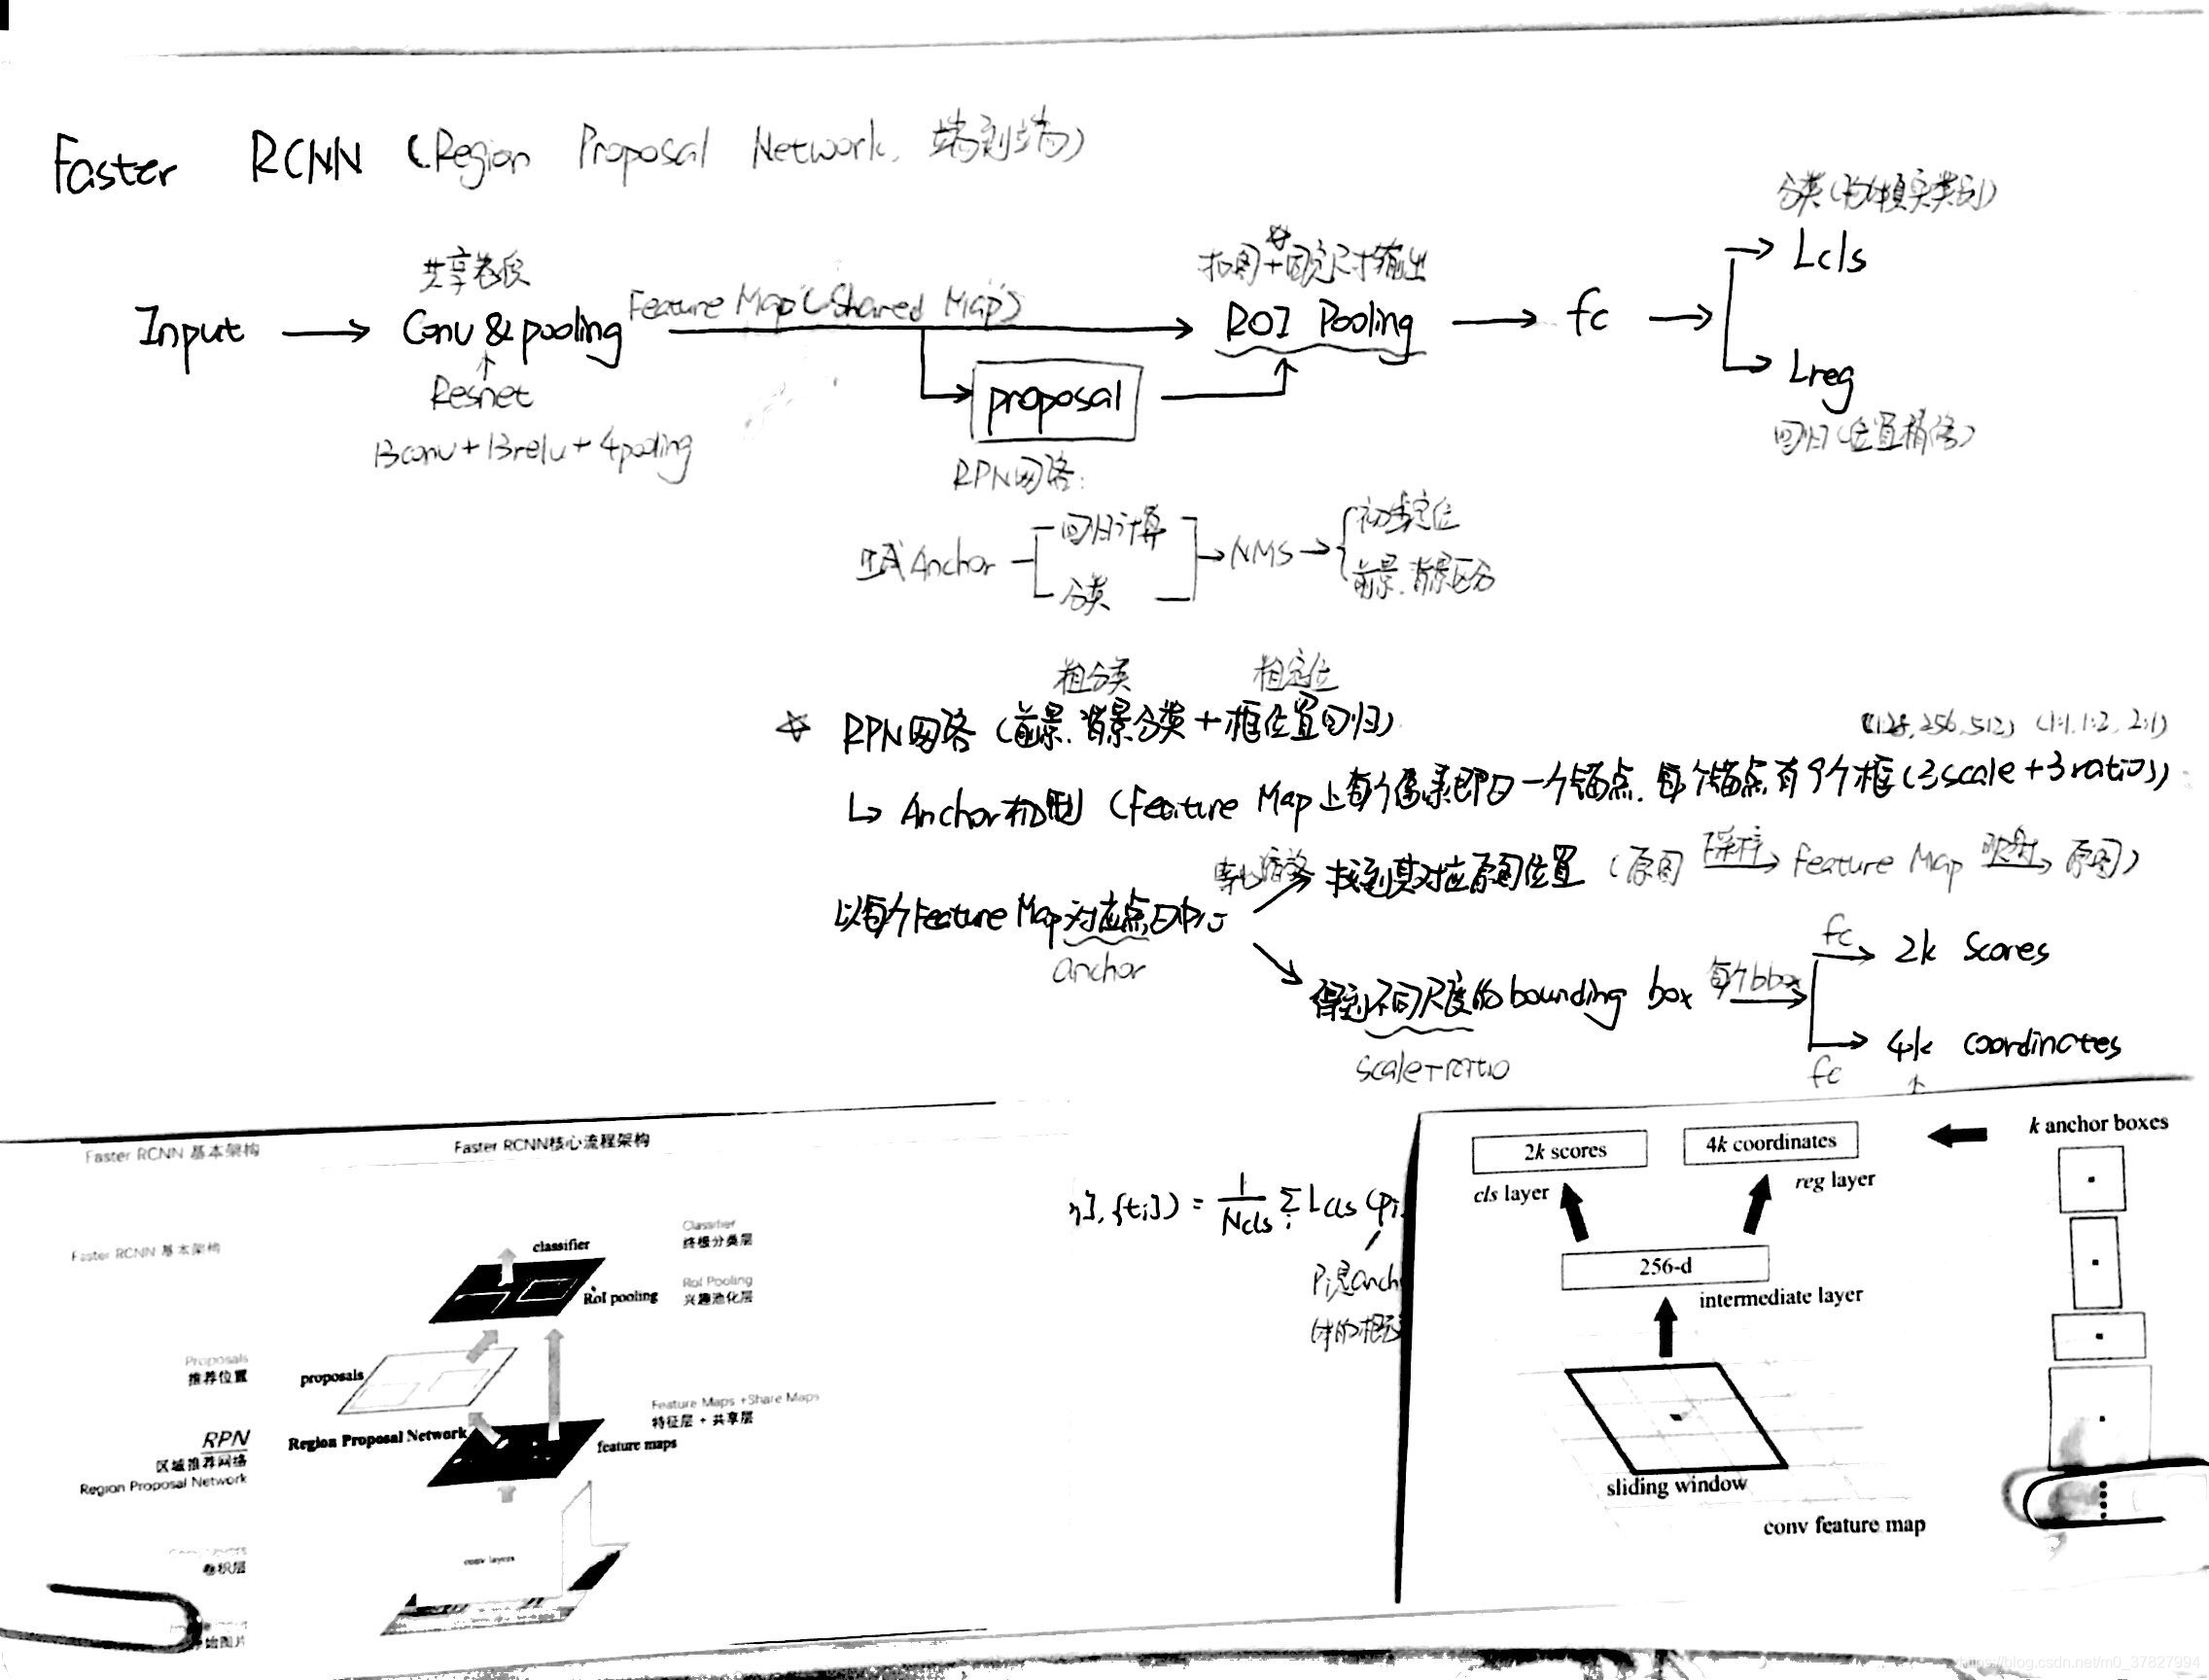 Faster RCNN (Region Proposal Network, 端到端)
分类(物体真实类别)
Lcls
共享卷积
Feature Map (Shared Map)
抠图+固定尺寸输出
Input → Conv & pooling → ROI Pooling → fc →
Lreg
回归(位置精修)
Resnet
13conv + 13relu + 4pooling
proposal
RPN网络:
Anchor
回归计算
分类
→ NMS →
初步定位
前景.背景区分
粗分类 粗定位
RPN网络(前景.背景分类 + 框位置回归)
(128, 256, 512) (1:1, 1:2, 2:1)
↳ Anchor机制 (Feature Map上每个像素即为一个锚点. 每个锚点有9个框(3scale + 3ratio))
等比缩放 找到其对应原图位置 (原图 下采样→ Feature Map 映射→ 原图)
以每个Feature Map对应点为中心
anchor
得到不同尺度的bounding box 每个bbox
scale+ratio
fc → 2k Scores
fc → 4k coordinates
Faster RCNN 基本架构
Faster RCNN核心流程架构
Faster RCNN 基本架构
classifier
Classifier
终极分类层
RoI pooling
RoI Pooling
兴趣池化层
Proposals
推荐位置
proposals
Feature Maps +Share Maps
特征层 + 共享层
RPN
区域推荐网络
Region Proposal Network
Region Proposal Network
feature maps
conv layers
卷积层
始图片
}, {ti}) = 1/Ncls Σi Lcls (pi
Pi是anch
体的概
2k scores
4k coordinates
k anchor boxes
cls layer
reg layer
256-d
intermediate layer
sliding window
conv feature map
https://blog.csdn.net/m0_37827994